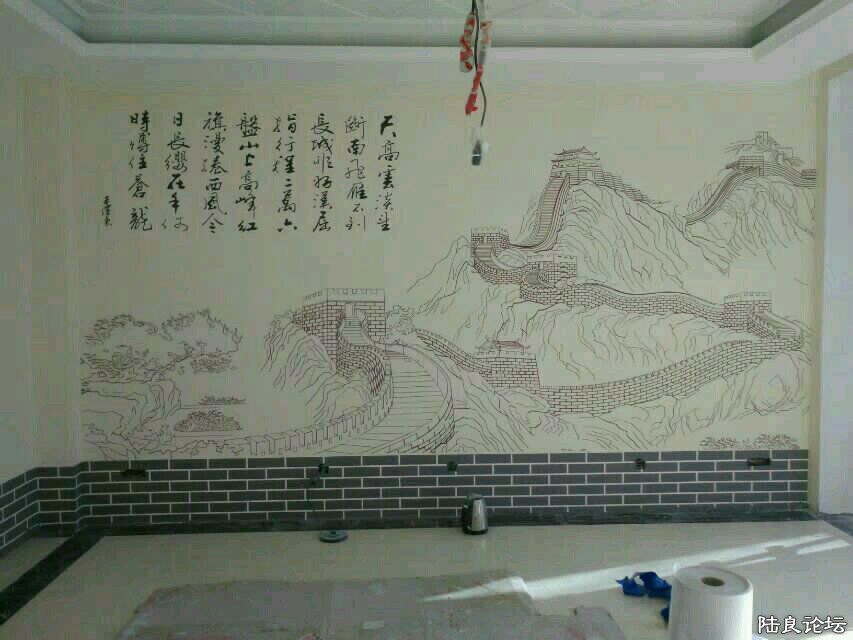 天高雲淡望
断南飛雁不到
長城非好漢屈
指行程二萬六
盤山上高峰紅
旗漫捲西風今
日長纓在手何
時縛住蒼龍
毛澤東
陆良论坛